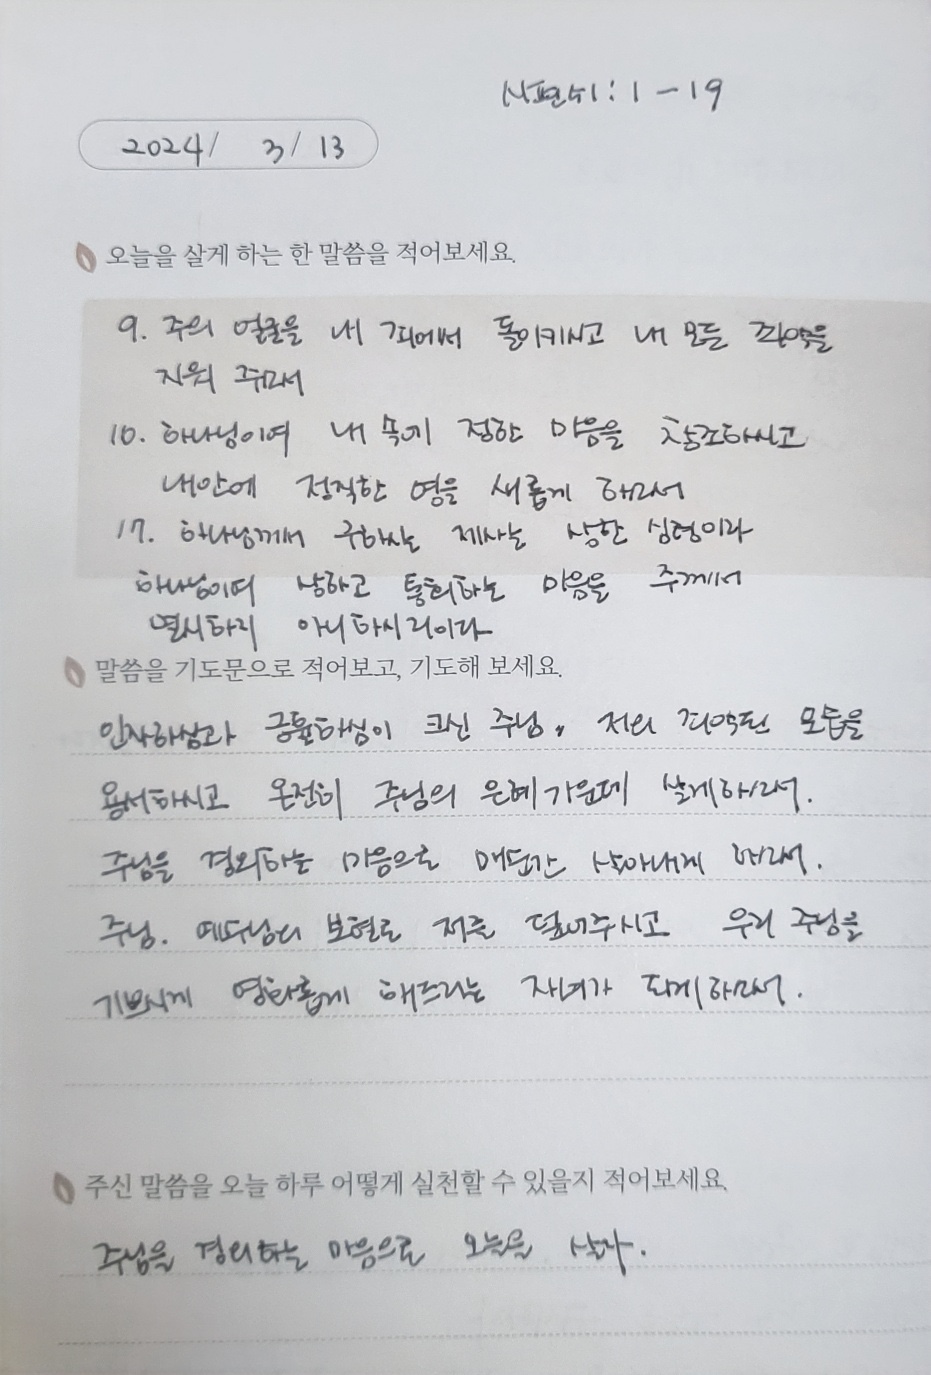 시편 51 : 1 - 19
2024/ 3/ 13
오늘을 살게 하는 한 말씀을 적어보세요.
9. 주의 얼굴을 내 죄에서 돌이키시고 내 모든 죄악을
지워 주소서
10. 하나님이여 내 속에 정한 마음을 창조하시고
내안에 정직한 영을 새롭게 하소서
17. 하나님께서 구하시는 제사는 상한 심령이라
하나님이여 상하고 통회하는 마음을 주께서
멸시하지 아니하시리이다
말씀을 기도문으로 적어보고, 기도해 보세요.
인자하심과 긍휼하심이 크신 주님. 저의 죄악된 모습을
용서하시고 온전히 주님의 은혜 가운데 살게하소서.
주님을 경외하는 마음으로 매순간 살아내게 하소서.
주님. 예수님의 보혈로 저를 덮어주시고 우리 주님을
기쁘시게 영화롭게 해드리는 자녀가 되게하소서.
주신 말씀을 오늘 하루 어떻게 실천할 수 있을지 적어보세요.
주님을 경외하는 마음으로 오늘을 살자.